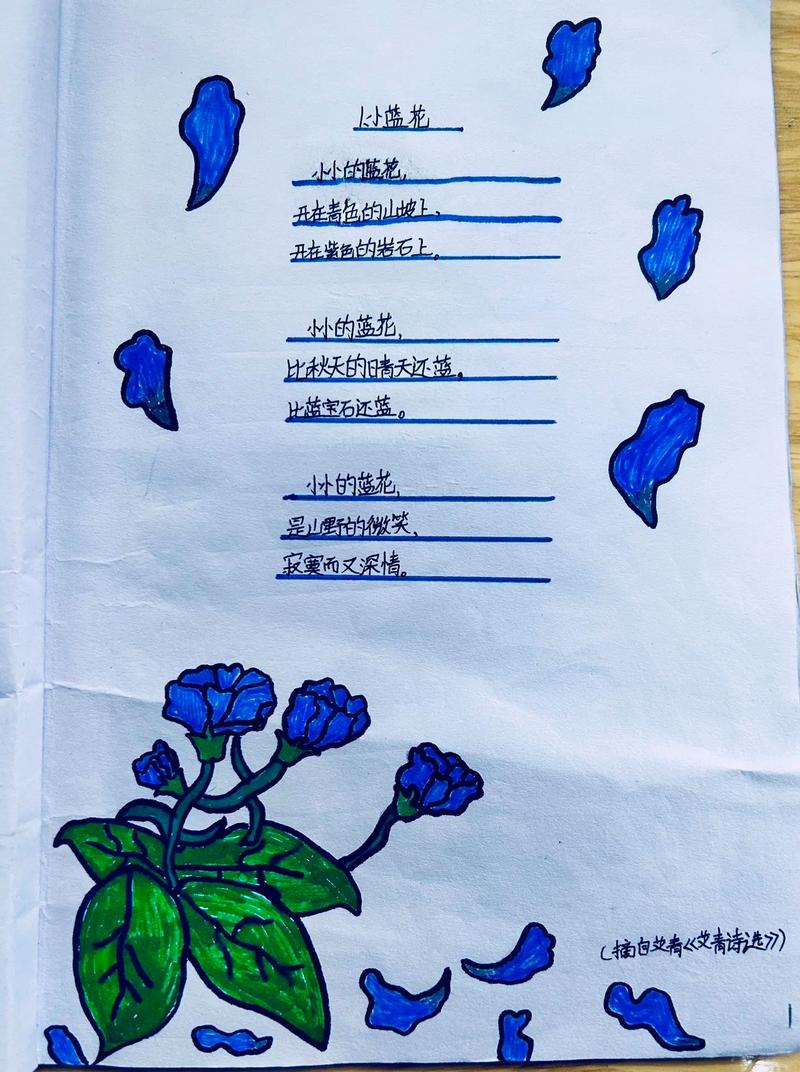 小蓝花
小小的蓝花,
开在青色的山坡上,
开在紫色的岩石上。
小小的蓝花,
比秋天的晴天还蓝。
比蓝宝石还蓝。
小小的蓝花,
是山野的微笑,
寂寞而又深情。
(摘自艾青《艾青诗选》)